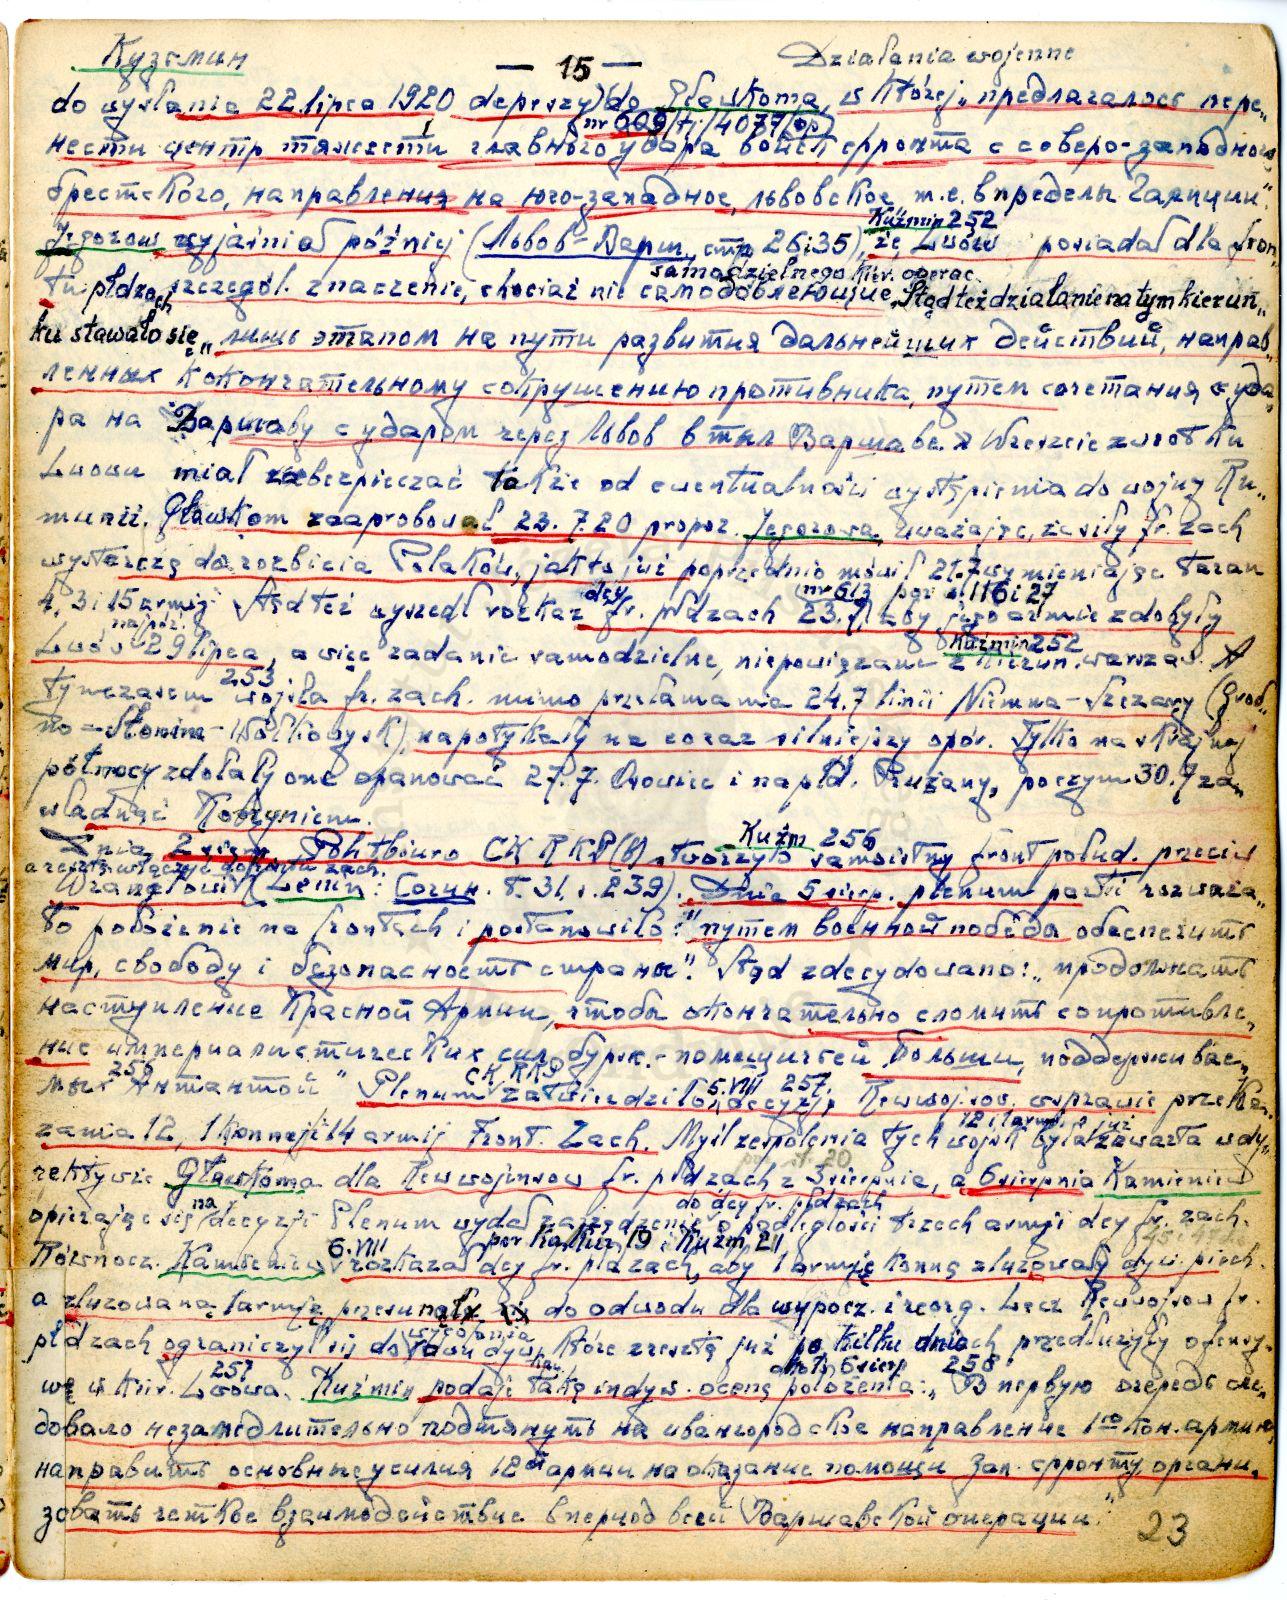 Кузьмин — 15 — Działania wojenne
do wysłania 22 lipca 1920 depeszy) do Gławkoma, w której „предлагалось пере„
(nr 609/tj/4077/op)
нести центр тяжести главного удара войск фронта с северо-западного
брестского, направления на юго-западное, львовское, т.е. в пределы Галиции".
Kuźmin 252
Jegorow wyjaśniał później (Львов-Варш., стр 26 i 35), że Lwów posiadał dla fron„
samodzielnego kier. operac.
tu płdzach szczegól. znaczenie, chociaż nie самодовлеющие. Stąd też działanie na tym kierun„
ku stawało się „лишь этапом на пути развития дальнейших действий, направ„
ленных к окончательному сокрушению противника, путем сочетания с уда„
ра на Варшаву с ударом через Львов в тыл Варшаве." Wreszcie zwrot ku
Lwowu miał zabezpieczać także od ewentualności wystąpienia do wojny Ru„
munii. Gławkom zaaprobował 23.7.20 propoz. Jegorowa, uważając, że siły fr. zach
wystarczą do rozbicia Polaków, jak to już poprzednio mówił 21.7 wymieniając taran
dcy (nr 613 por s 116 i 27
4, 3 i 15 armij. Stąd też wyszedł rozkaz fr. płdzach 23.7, aby jego armie zdobyły
najpóź. Kuźmin 252
Lwów 29 lipca, a więc zadanie samodzielne, niepowiązane z kierun. warszaw. A
253
tymczasem wojska fr. zach. mimo przełamania 24.7 linii Niemna-Szczary (Grod„
no-Słonim-Wołkowysk), napotykały na coraz silniejszy opór. Tylko na skrajnej
północy zdołały one opanować 27.7. Osowiec i na płd. Prużany, poczym 30.7 za„
władnąć Kobryniem.
Kuźm 256
Dnia 2 sierp. Politbiuro CK RKP(b) stworzyło samoistny front połud. przeciw
a resztę włączyć do frontu zach.
Wranglowi (Lenin: Сочин. т. 31, s. 239). Dnia 5 sierp. plenum partii rozważa„
ło położenie na frontach i postanowiło: "путем военной победы обеспечить
мир, свободу и безопасность страны". Stąd zdecydowano: „продолжать
наступление Красной Армии, чтобы окончательно сломить сопротивле„
ние империалистических сил бурж.-помещичьей Польши, поддерживае„
259 CK RKP 5.VIII 257.
мых Антантой" Plenum zatwierdziło decyzję Rewwojsow. w sprawie przeka„
12 i 1 armij a już
zania 12, 1 konnej i 14 armij Front. Zach. Myśl zespolenia tych wojsk była zawarta w dy„
rektywie Gławkoma dla Rewwojensow fr. płdzach z 3 sierpnia, a 6 sierpnia Kamieniew
na do dcy fr. płdzach
opierając się decyzji Plenum wydał zarządzenie o podległości trzech armji dcy fr. zach.
6.VIII por Kakur 19 i Kuźm 21
Równocz. Kamieniew rozkazał dcy fr. płdzach, aby 1 armję konną zluzowały dyw. piech.
a zluzowaną 1 armję przesunąć do odwodu dla wypocz. i reorg. Lecz Rewwojsow fr.
wycofania
płdzach ograniczył się do dwu dyw., które zresztą już po kilku dniach przedłużyły ofensy„
257 około 6 sierp 258
wę w kier. Lwowa. Kuźmin podaje taką indyw. ocenę położenia: „В первую очередь сле„
довало незамедлительно подтянуть на ивангородское направление 1ую кон. армию,
направить основные усилия 12ой армии на оказание помощи Зап. фронту, органи„
зовать четкое взаимодействие в период всей Варшавской операции."
23